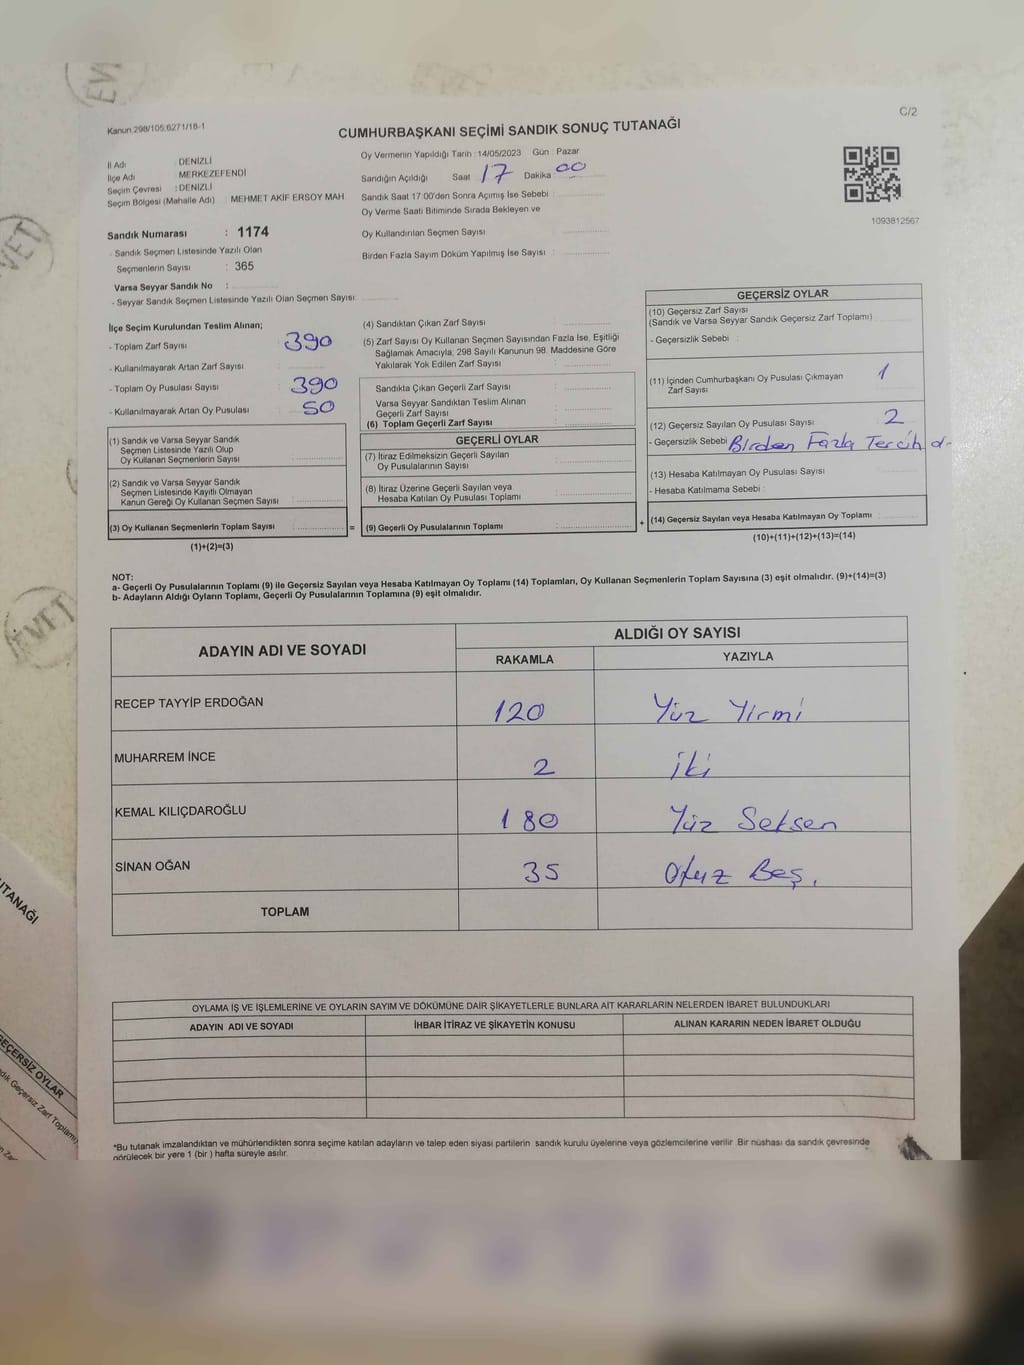 EVET
Kanun 298/105;6271/18-1
C/2
CUMHURBAŞKANI SEÇİMİ SANDIK SONUÇ TUTANAĞI
İl Adı : DENİZLİ
İlçe Adı : MERKEZEFENDİ
Seçim Çevresi : DENİZLİ
Seçim Bölgesi (Mahalle Adı) : MEHMET AKİF ERSOY MAH
Sandık Numarası : 1174
- Sandık Seçmen Listesinde Yazılı Olan
Seçmenlerin Sayısı : 365
Varsa Seyyar Sandık No :
- Seyyar Sandık Seçmen Listesinde Yazılı Olan Seçmen Sayısı:
Oy Vermenin Yapıldığı Tarih : 14/05/2023 Gün : Pazar
Sandığın Açıldığı Saat 17 Dakika 00
Sandık Saat 17 00'den Sonra Açımış İse Sebebi :
Oy Verme Saati Bitiminde Sırada Bekleyen ve
Oy Kullandırılan Seçmen Sayısı
Birden Fazla Sayım Döküm Yapılmış İse Sayısı :
1093812567
İlçe Seçim Kurulundan Teslim Alınan;
- Toplam Zarf Sayısı : 390
- Kullanılmayarak Artan Zarf Sayısı :
- Toplam Oy Pusulası Sayısı : 390
- Kullanılmayarak Artan Oy Pusulası : 50
(1) Sandık ve Varsa Seyyar Sandık
Seçmen Listesinde Yazılı Olup
Oy Kullanan Seçmenlerin Sayısı :
(2) Sandık ve Varsa Seyyar Sandık
Seçmen Listesinde Kayıtlı Olmayan
Kanun Gereği Oy Kullanan Seçmen Sayısı :
(3) Oy Kullanan Seçmenlerin Toplam Sayısı :
(1)+(2)=(3)
=
(4) Sandıktan Çıkan Zarf Sayısı
(5) Zarf Sayısı Oy Kullanan Seçmen Sayısından Fazla İse, Eşitliği
Sağlamak Amacıyla; 298 Sayılı Kanunun 98. Maddesine Göre
Yakılarak Yok Edilen Zarf Sayısı :
Sandıkta Çıkan Geçerli Zarf Sayısı :
Varsa Seyyar Sandıktan Teslim Alınan
Geçerli Zarf Sayısı :
(6) Toplam Geçerli Zarf Sayısı :
GEÇERLİ OYLAR
(7) İtiraz Edilmeksizin Geçerli Sayılan
Oy Pusulalarının Sayısı :
(8) İtiraz Üzerine Geçerli Sayılan veya
Hesaba Katılan Oy Pusulası Toplamı :
(9) Geçerli Oy Pusulalarının Toplamı :
+
GEÇERSİZ OYLAR
(10) Geçersiz Zarf Sayısı
(Sandık ve Varsa Seyyar Sandık Geçersiz Zarf Toplamı)
- Geçersizlik Sebebi :
(11) İçinden Cumhurbaşkanı Oy Pusulası Çıkmayan
Zarf Sayısı 1
(12) Geçersiz Sayılan Oy Pusulası Sayısı 2
- Geçersizlik Sebebi : Birden Fazla Tercih
(13) Hesaba Katılmayan Oy Pusulası Sayısı
- Hesaba Katılmama Sebebi :
(14) Geçersiz Sayılan veya Hesaba Katılmayan Oy Toplamı :
(10)+(11)+(12)+(13)=(14)
NOT:
a- Geçerli Oy Pusulalarının Toplamı (9) ile Geçersiz Sayılan veya Hesaba Katılmayan Oy Toplamı (14) Toplamları, Oy Kullanan Seçmenlerin Toplam Sayısına (3) eşit olmalıdır. (9)+(14)=(3)
b- Adayların Aldığı Oyların Toplamı, Geçerli Oy Pusulalarının Toplamına (9) eşit olmalıdır.
ADAYIN ADI VE SOYADI
ALDIĞI OY SAYISI
RAKAMLA YAZIYLA
RECEP TAYYİP ERDOĞAN 120 Yüz Yirmi
MUHARREM İNCE 2 iki
KEMAL KILIÇDAROĞLU 180 Yüz Seksen
SİNAN OĞAN 35 Otuz Beş.
TOPLAM
OYLAMA İŞ VE İŞLEMLERİNE VE OYLARIN SAYIM VE DÖKÜMÜNE DAİR ŞİKAYETLERLE BUNLARA AİT KARARLARIN NELERDEN İBARET BULUNDUKLARI
ADAYIN ADI VE SOYADI İHBAR İTİRAZ VE ŞİKAYETİN KONUSU ALINAN KARARIN NEDEN İBARET OLDUĞU
*Bu tutanak imzalandıktan ve mühürlendikten sonra seçime katılan adayların ve talep eden siyasi partilerin sandık kurulu üyelerine veya gözlemcilerine verilir. Bir nüshası da sandık çevresinde
görülecek bir yere 1 (bir) hafta süreyle asılır.
EVET
EVET
UTANAĞI
GEÇERSİZ OYLAR